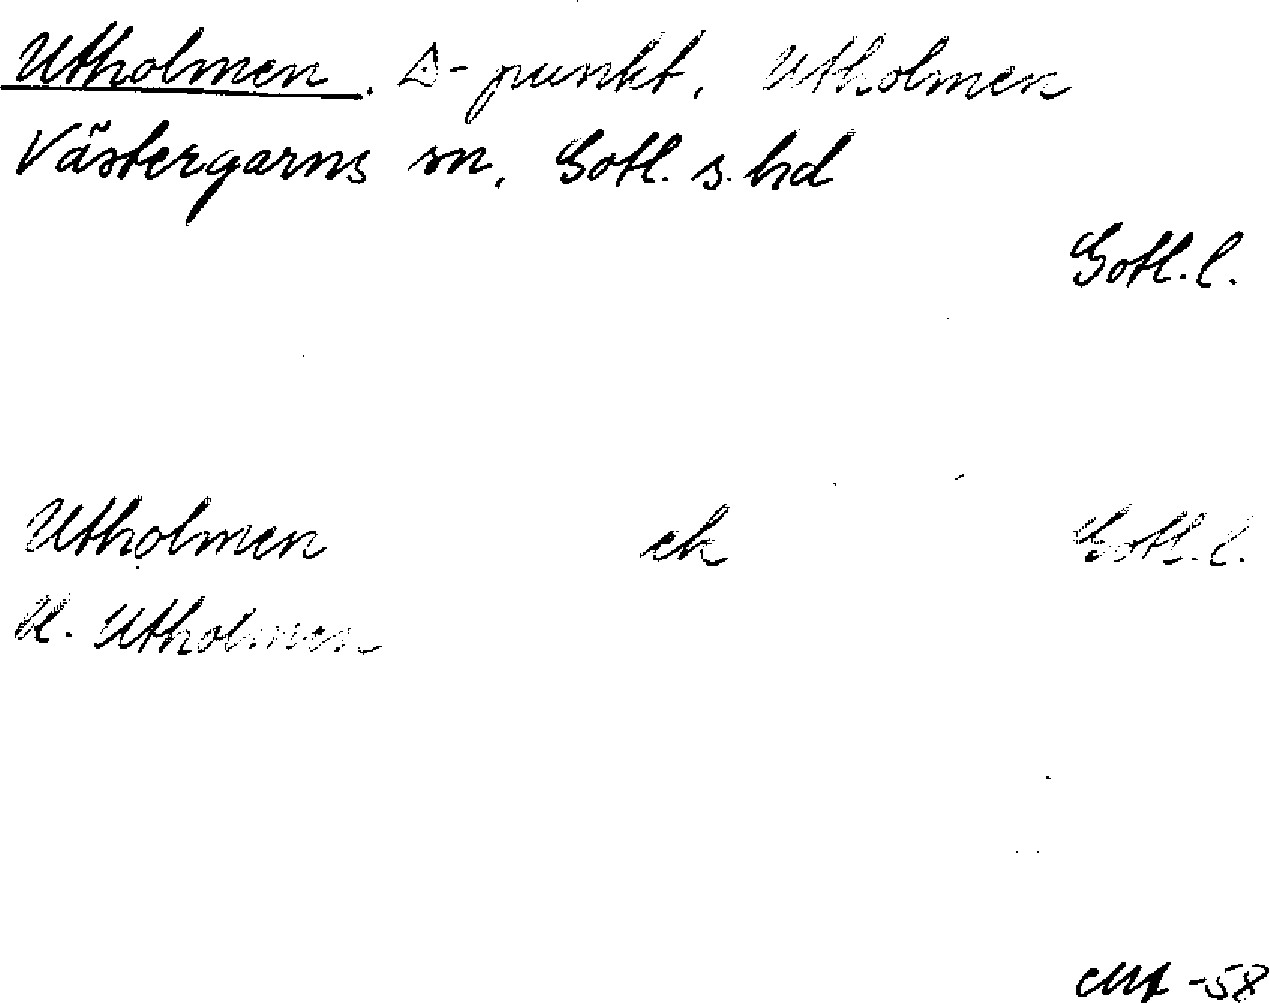 Utholmen. △-punkt, Utholmen
Västergarns sn, Gotl. s. hd
Gotl. l.
Utholmen ek Gotl. l.
U. Utholmen
-58